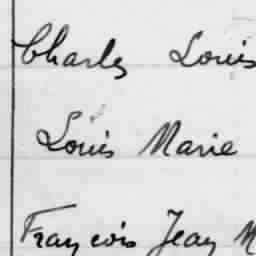 Charles Louis
Louis Marie
François Jean M